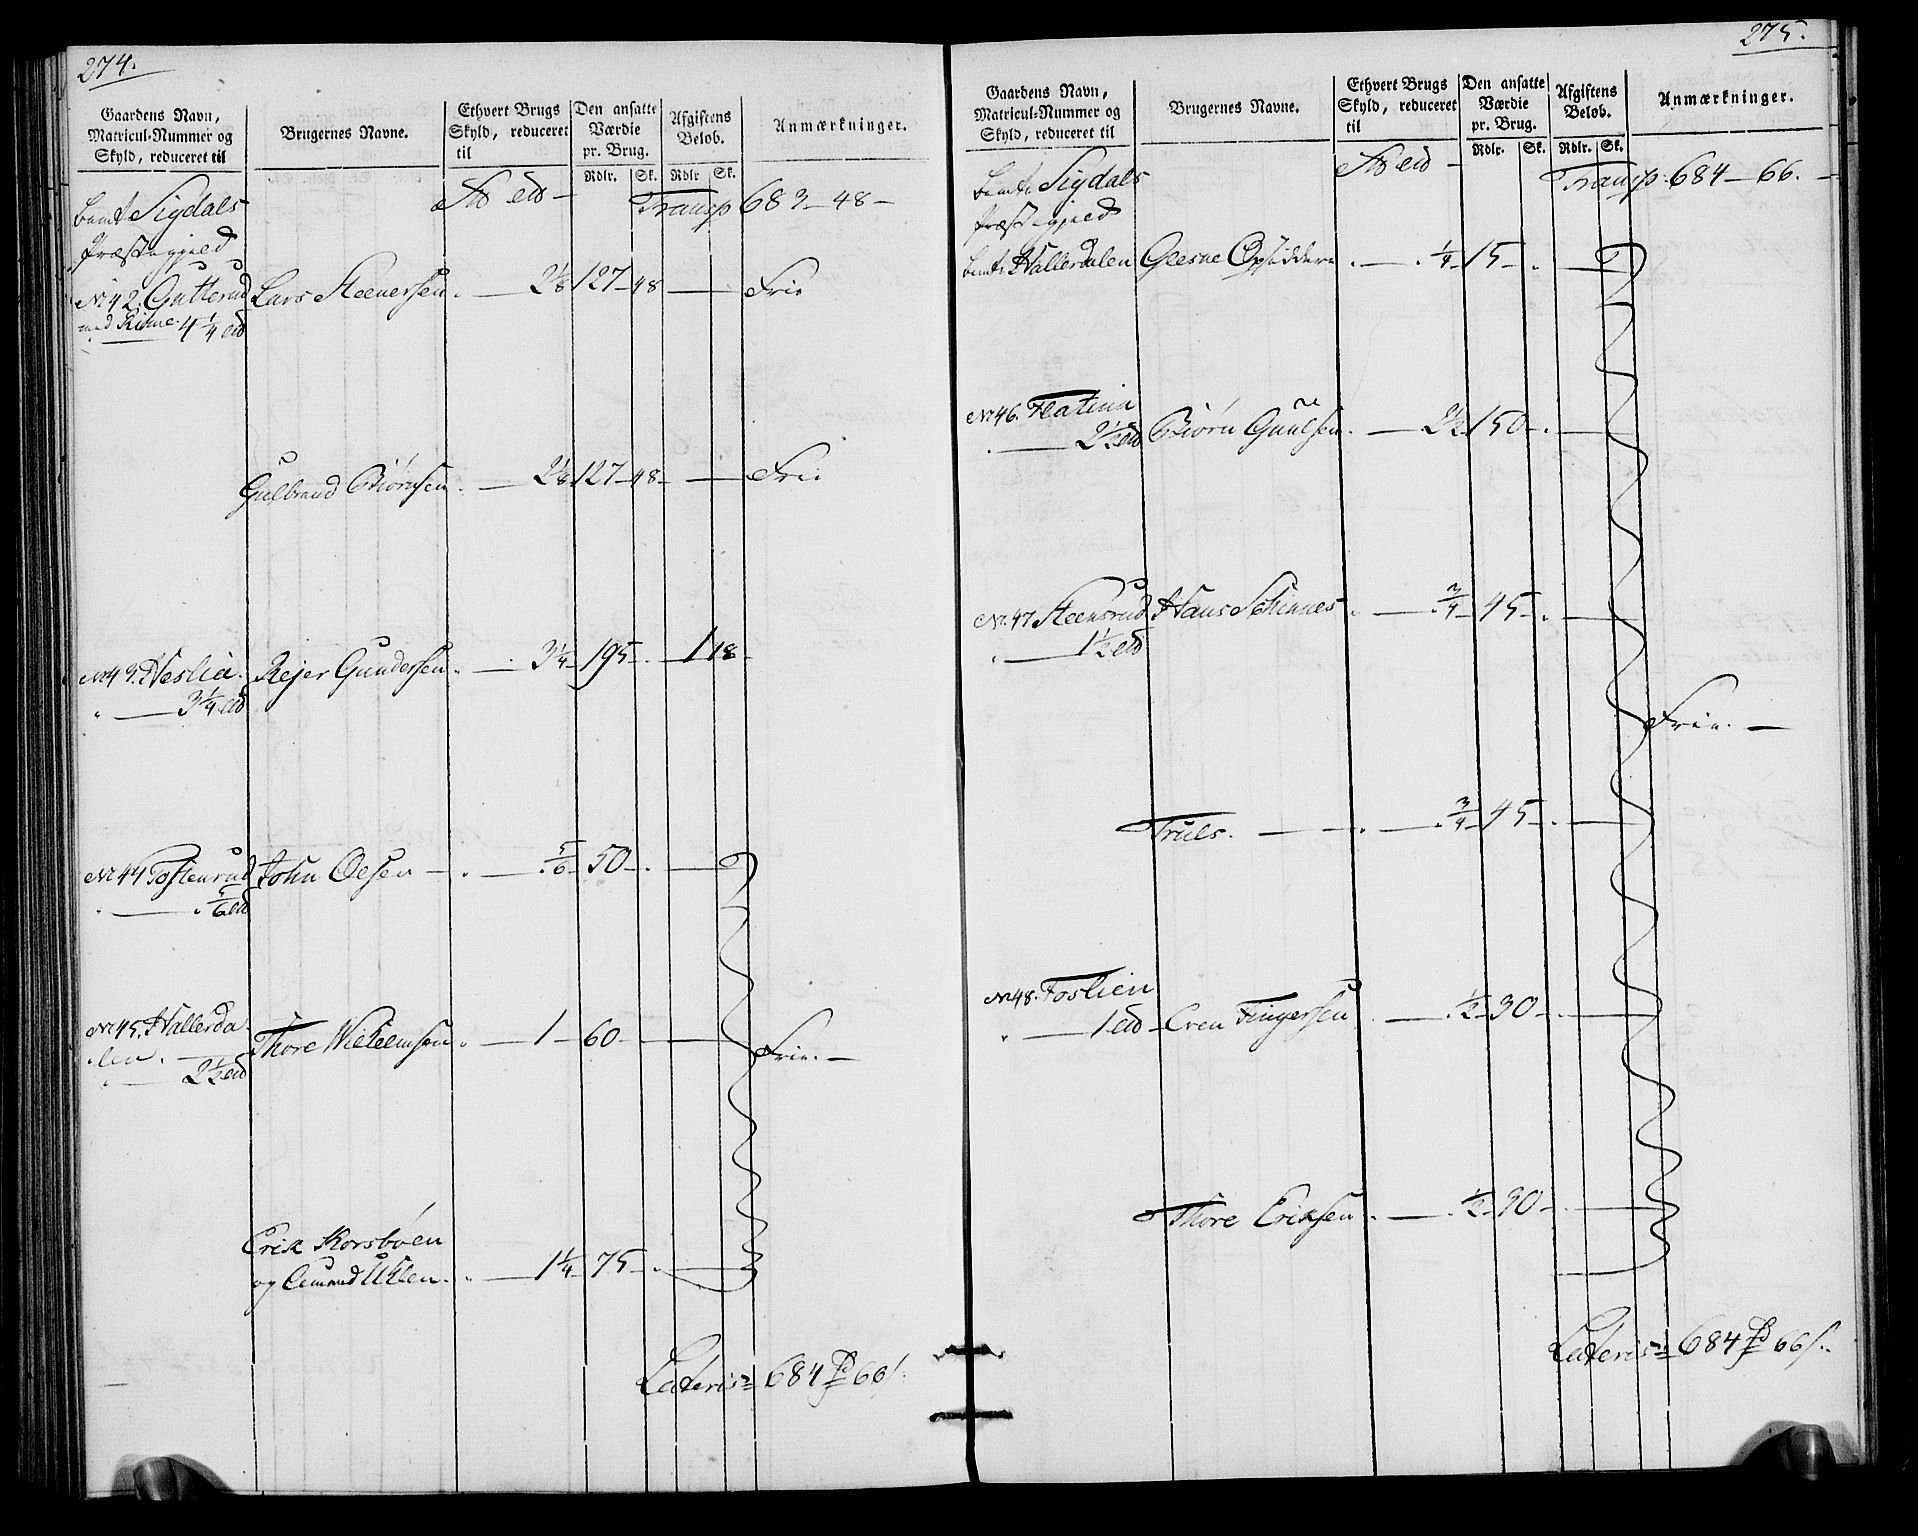 274.
Gaardens Navn,
Matricul-Nummer og
Skyld, reduceret til
Brugernes Navne.
Ethvert Brugs
Skyld, reduceret
til
Den ansatte
Værdie
pr. Brug.
Rdlr. Sk.
Afgiftens
Beløb.
Rdlr Sk.
Anmærkninger.
Sigdals Transp 683 - 48 -
Præstegjeld
No 42. Gutterud Lars Steenersen. — 2 1/8 127 - 48 — Frie
med Rime. 4 1/4
Gulbrand Biørnsen. — 2 1/8 127 - 48 - — Frie
No 43. Neslia. Rejer Gundersen. — 3 1/4 - 195 - . 1 18
" — 3 1/4
No 44 Tostenrud John Olsen - . — . 5/6 - 50 - . —
" — . 5/6
No 45. Hallerda
len. Thore Willumsen . — 1 - 60 - — Frie. —
" — 2 1/2
Erik Korsbøen
og Amund Ulen. . — 1 1/4 - 75 - . —
Lateris = 684 66
275.
Gaardens Navn,
Matricul-Nummer og
Skyld, reduceret til
Brugernes Navne.
Ethvert Brugs
Skyld, reduceret
til
Den ansatte
Værdie
pr. Brug.
Rdlr. Sk.
Afgiftens
Beløb.
Rdlr. Sk.
Anmærkninger.
Sigdals Transp. 684 - 66. -
Præstegjeld
Hallerdalen . — . 1/4 - 15 - . —
No 46. Flatin
" — 2 1/2 Biørn Guulsen. — 2 1/2 150 - . —
No 47 Steensrud Hans Schinnes . — . 3/4 - 45 - . —
" — 1 1/2
Frie. —
Truls. — . — . 3/4 - 45 - . —
No 48. Foslien
" — 1 Even Fingersen . — . 1/2 - 30 - . —
Thore Eriksen . — . 1/2 - 30 - . —
Lateris = 684 66